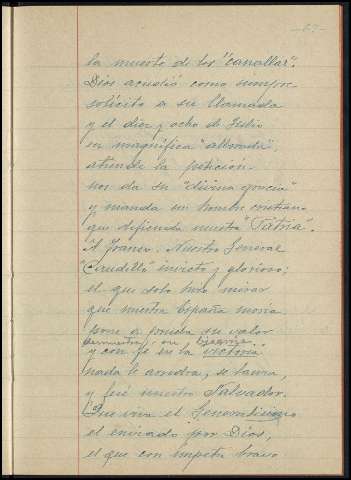 -67-
la muerte de los "canallas".
Dios acudió como siempre
solícito a su llamada
y el diez y ocho de Julio
en magnífica "alborada",
atiende la petición
nos da su "divina gracia"
y manda un hombre cristiano
que defienda nuestra "Patria".
A Franco. Nuestro General
"Caudillo" invicto y glorioso;
el que solo tuvo mirar
que nuestra España moría
pone a prueba su valor
demuestra su
y con fe en la victoria
nada le arredra, se lanza,
y fué nuestro Salvador.
Que viva el Generalísimo
el enviado por Dios,
el que con ímpetu bravo